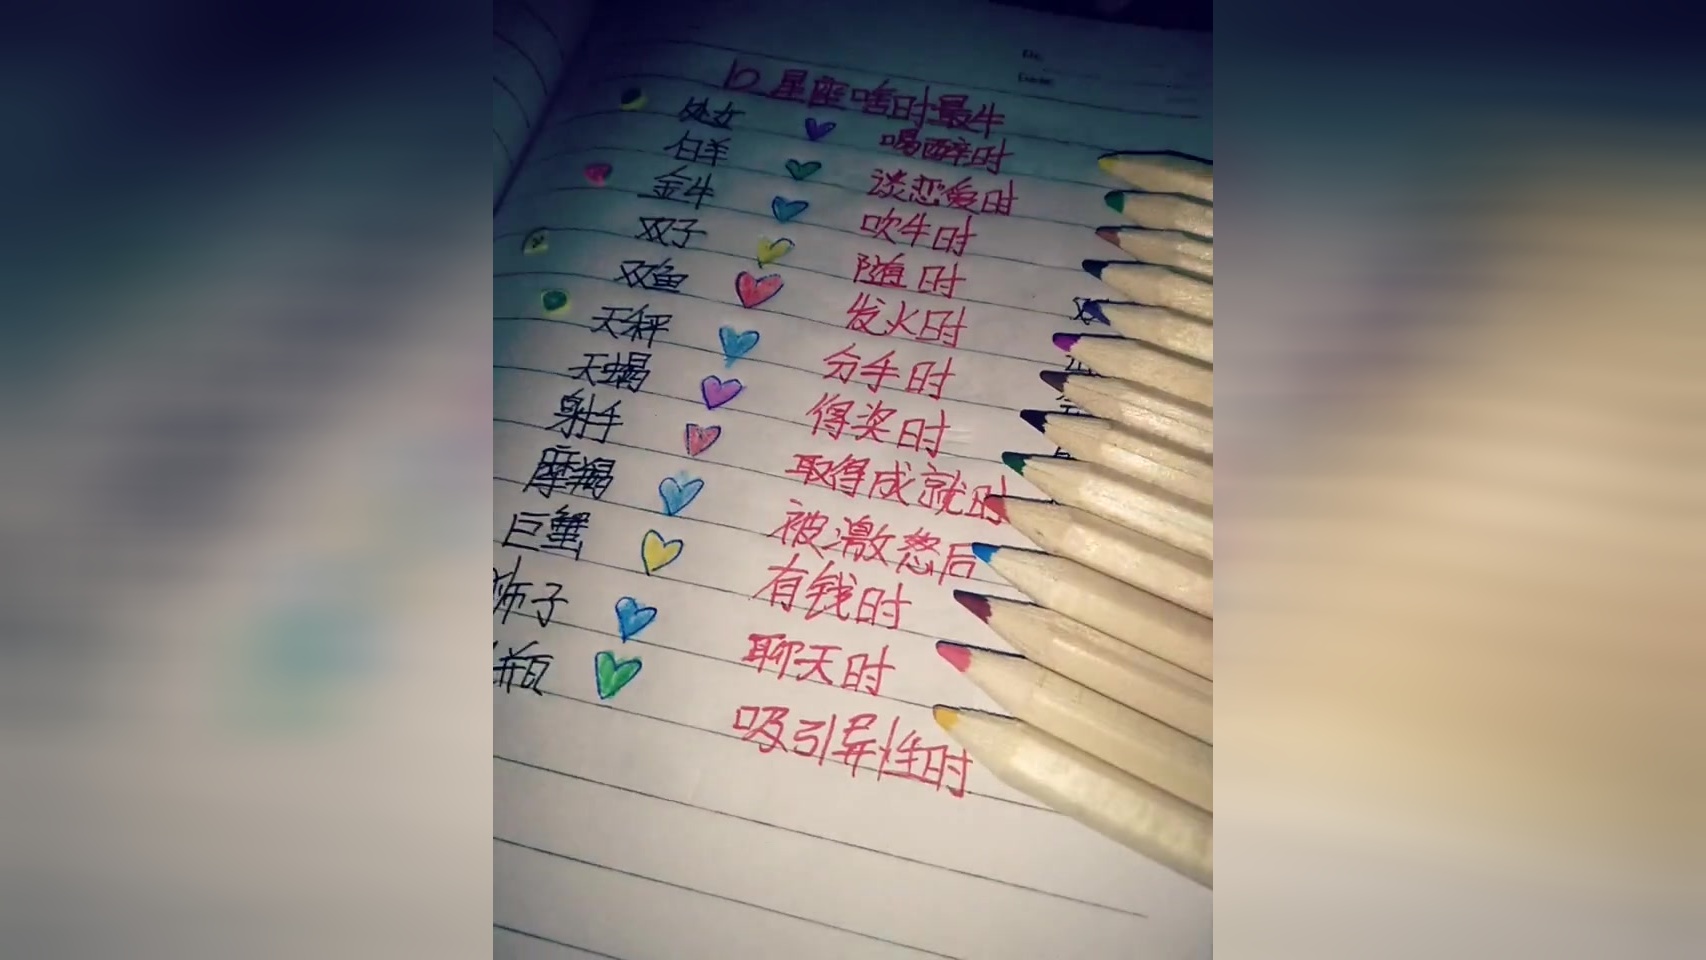 12星座啥时最牛
处女 喝醉时
白羊 谈恋爱时
金牛 吹牛时
双子 随时
双鱼 发火时
天秤 分手时
天蝎 得奖时
射手 取得成就时
摩羯 被激怒后
巨蟹 有钱时
狮子 聊天时
瓶 吸引异性时